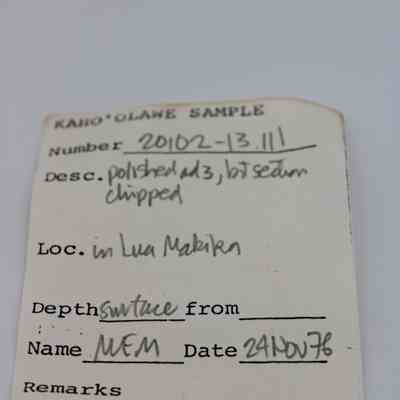 KAHO'OLAWE SAMPLE
Number 20102-13.111
Desc. polished adz, bit section
chipped
Loc. in Lua Makika
Depth surface from
Name MEM Date 24 Nov 76
Remarks